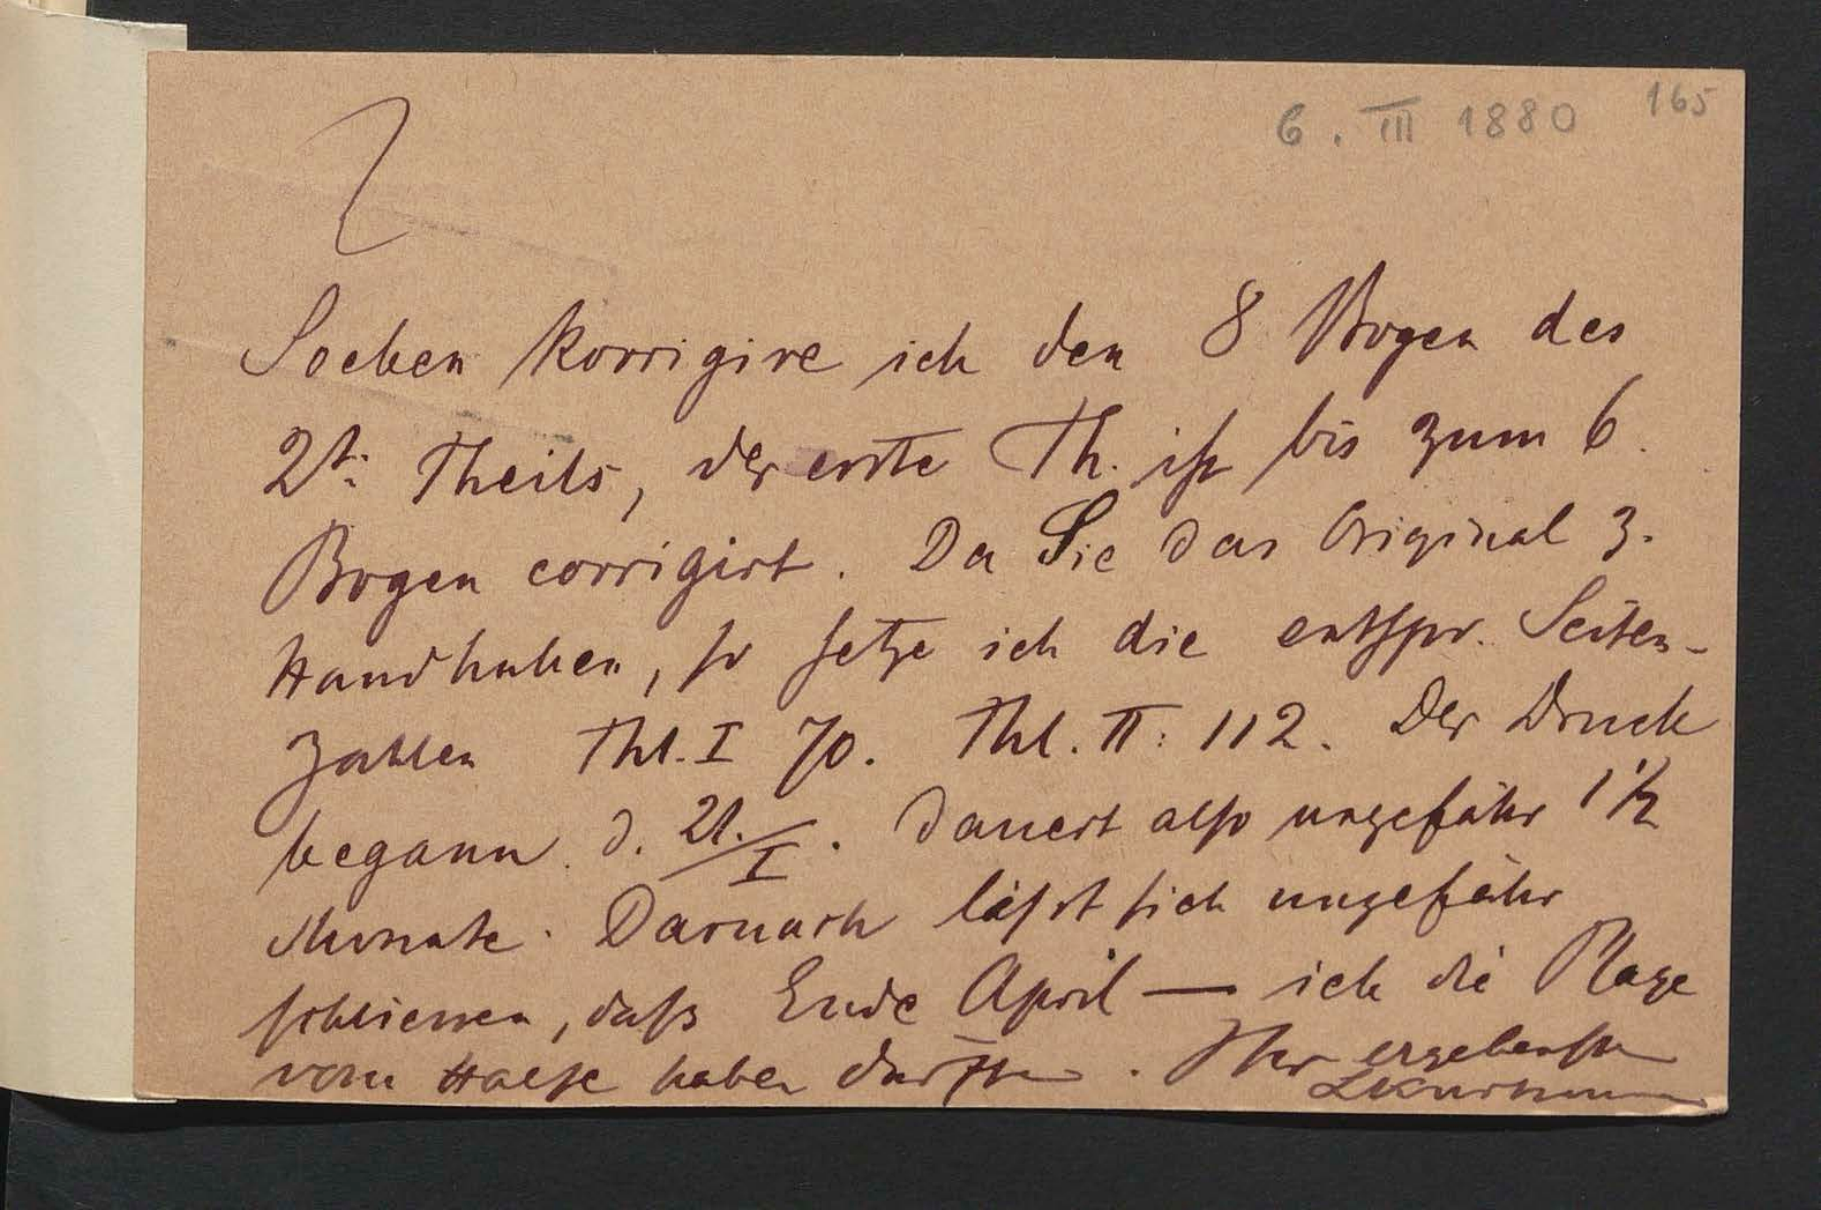 165
6. III 1880
Soeben korrigire ich den 8 Bogen des
2t. Theils, der erste Th. ist bis zum 6.
Bogen corrigirt. Da Sie das Original z.
Hand haben, so setze ich die entspr. Seiten-
zahlen Thl. I 70. Thl. II: 112. Der Druck
begann d. 21./I. dauert also ungefähr 1 1/2
Monate. Darnach läßt sich ungefähr
schliessen, daß Ende April — ich die Plage
vom Halse haben dürfte. Ihr ergebenster